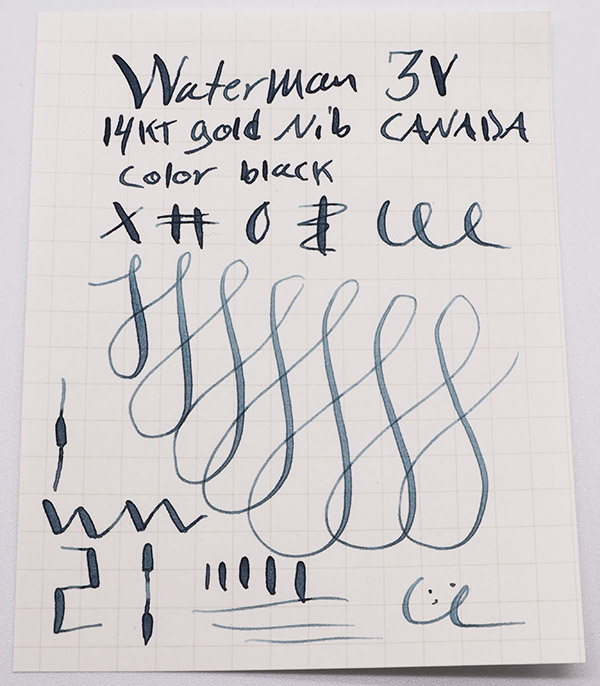 Waterman 3V
14KT gold Nib CANADA
Color black
X # 0